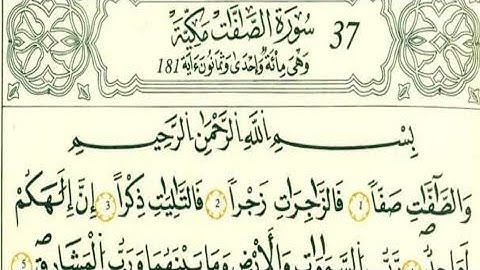 37 سُورَةُ الصَّٰفَّٰتِ مَكِّيَّة
وَهْىَ مِائَةٌ وَإِحْدَىٰ وَثَمَانُونَ ءَايَة 181
بِسْمِ اللَّهِ الرَّحْمَٰنِ الرَّحِيمِ
وَالصَّٰٓفَّٰتِ صَفّاً 1 فَالزَّٰجِرَٰتِ زَجْراً 2 فَالتَّٰلِيَٰتِ ذِكْراً 3 إِنَّ إِلَٰهَكُمْ
رَّبُّ السَّمَٰوَٰتِ وَالْأَرْضِ وَمَا بَيْنَهُمَا وَرَبُّ الْمَشَٰرِقِ 5